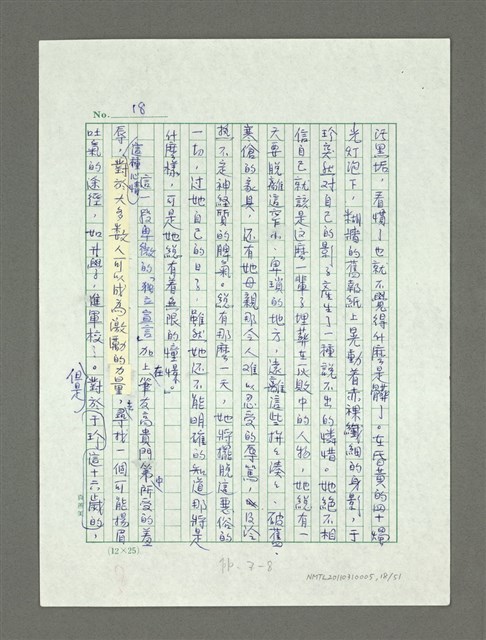 No. 18
汙黑垢,看慣了也就不覺得什麼是髒了。在昏黃的四十燭
光灯泡下,糊牆的舊報紙上晃動着赤裸纖細的身影,于
玲突然對自己的影子產生了一種說不出的憐惜。她絕不相
信自己就該是這麼一輩子埋葬在灰敗中的人物,她總有一
天要脫離這窄小、卑瑣的地方,遠離這些拼拼湊湊、破舊、
寒傖的家具,還有她母親那令人難以忍受的辱罵,
捉不定神經質的脾氣。總有那麼一天,她將擺脫這裏俗的
一切,过她自己的日子,雖然她还不能明確的知道那將是
什麼樣,可是她總有着無限的憧憬。」
這一段卑微的「獨立宣言」加上在筆友高貴門第中所受的羞
辱,這種心情對於大多數人可以成為激勵的力量,去尋找一個可能揚眉
吐氣的途徑,如升學、進軍校…。但是對於于玲這十六歲的,
(12×25)
NMTL20110310005, 18/51